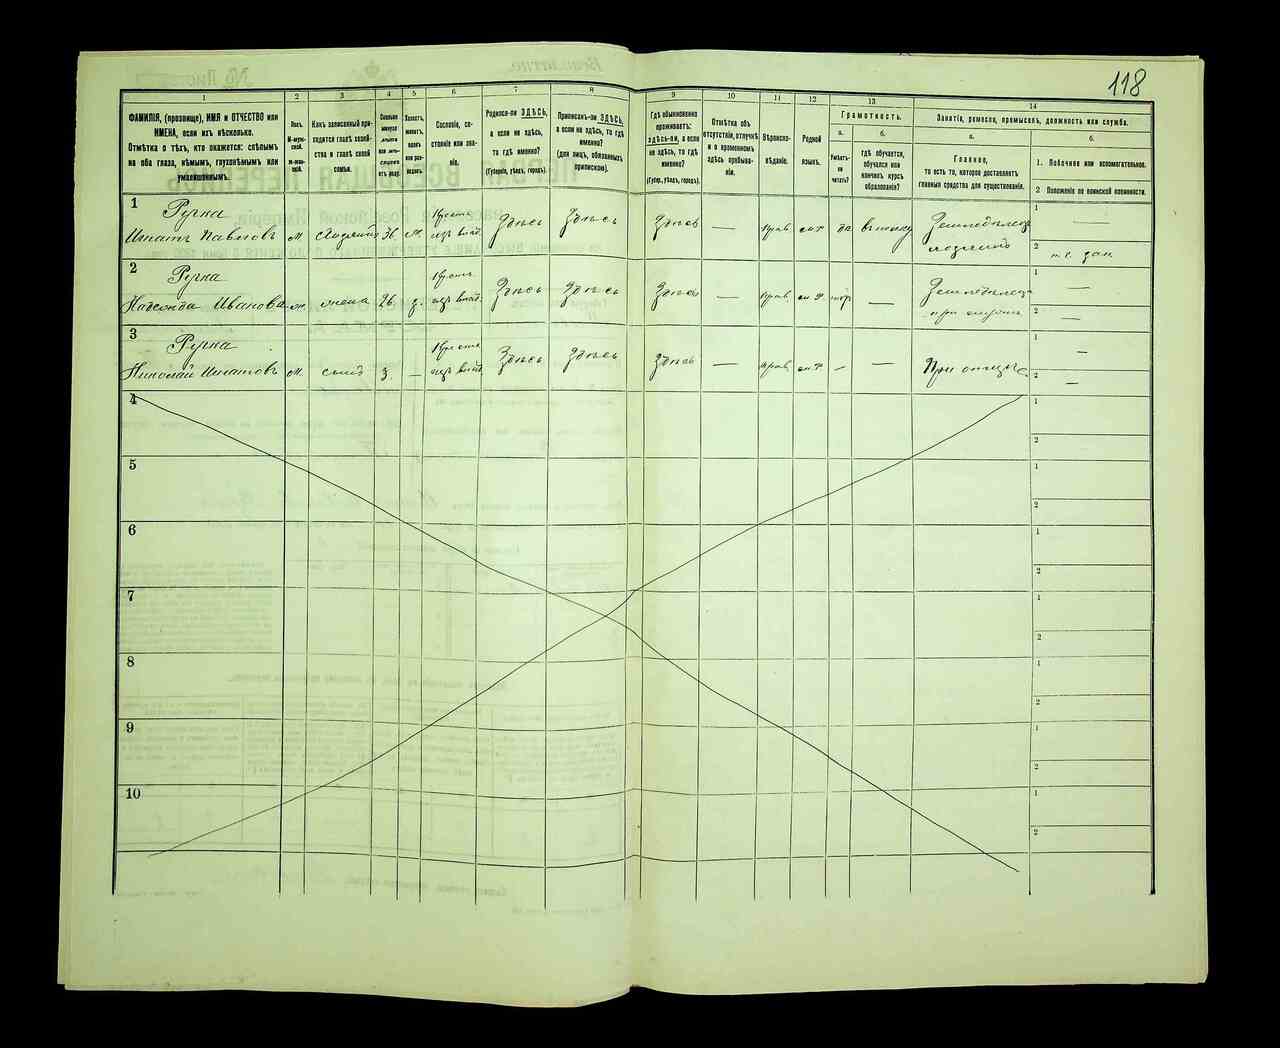 118
1
2
3
4
5
6
7
8
9
10
11
12
13
14
ФАМИЛІЯ, (прозвище), ИМЯ и ОТЧЕСТВО или
ИМЕНА, если ихъ нѣсколько.
Отмѣтка о тѣхъ, кто окажется: слѣпымъ
на оба глаза, нѣмымъ, глухонѣмымъ или
умалишоннымъ.
Полъ.
М-муж-
ской.
Ж-жен-
скій.
Какъ записанный при-
ходится главѣ хозяй-
ства и главѣ своей
семьи.
Сколько
минуло
лѣтъ
или мѣ-
сяцевъ
отъ роду.
Холостъ,
женатъ,
вдовъ
или раз-
веденъ.
Сословіе, со-
стояніе или зва-
ніе.
Родился-ли ЗДѢСЬ,
а если не здѣсь,
то гдѣ именно?
(Губернія, уѣздъ, городъ).
Приписанъ-ли ЗДѢСЬ,
а если не здѣсь, то гдѣ
именно?
(для лицъ, обязанныхъ
припискою).
Гдѣ обыкновенно
проживаетъ:
здѣсь-ли, а если
не здѣсь, то гдѣ
именно?
(Губер., уѣздъ, городъ).
Отмѣтка объ
отсутствіи, отлучкѣ
и о временномъ
здѣсь пребыва-
ніи.
Вѣроиспо-
вѣданіе.
Родной
языкъ.
Грамотность.
а.
б.
Умѣетъ-
ли
читать?
гдѣ обучается,
обучался или
кончилъ курсъ
образованія?
Занятіе, ремесло, промыселъ, должность или служба.
а.
б.
Главное,
то есть то, которое доставляетъ
главныя средства для существованія.
1. Побочное или вспомогательное.
2 Положеніе по воинской повинности.
1
Ручка
Игнатъ Павловъ
м
Хозяинъ
36
ж.
Крест.
изъ влад.
Здѣсь
Здѣсь
Здѣсь
—
прав.
мл.
да
Земледѣлецъ
хозяинъ
1
—
2
2
Ручка
Надежда Иванова
ж.
жена
26
з.
Крест.
изъ влад.
Здѣсь
Здѣсь
Здѣсь
—
прав.
мл.
—
Земледѣлецъ
при мужѣ
1
—
2
—
3
Ручка
Николай Игнатовъ
м.
сынъ
3
—
Крест.
изъ влад.
Здѣсь
Здѣсь
Здѣсь
—
прав.
мл.
—
—
При отцѣ
1
—
2
—
4
1
2
5
1
2
6
1
2
7
1
2
8
1
2
9
1
2
10
1
2